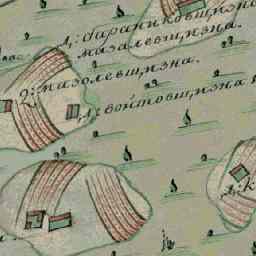 1: бараниковщизна
мазалевщизна.
2: мазолевщизна.
1: войтовщизна